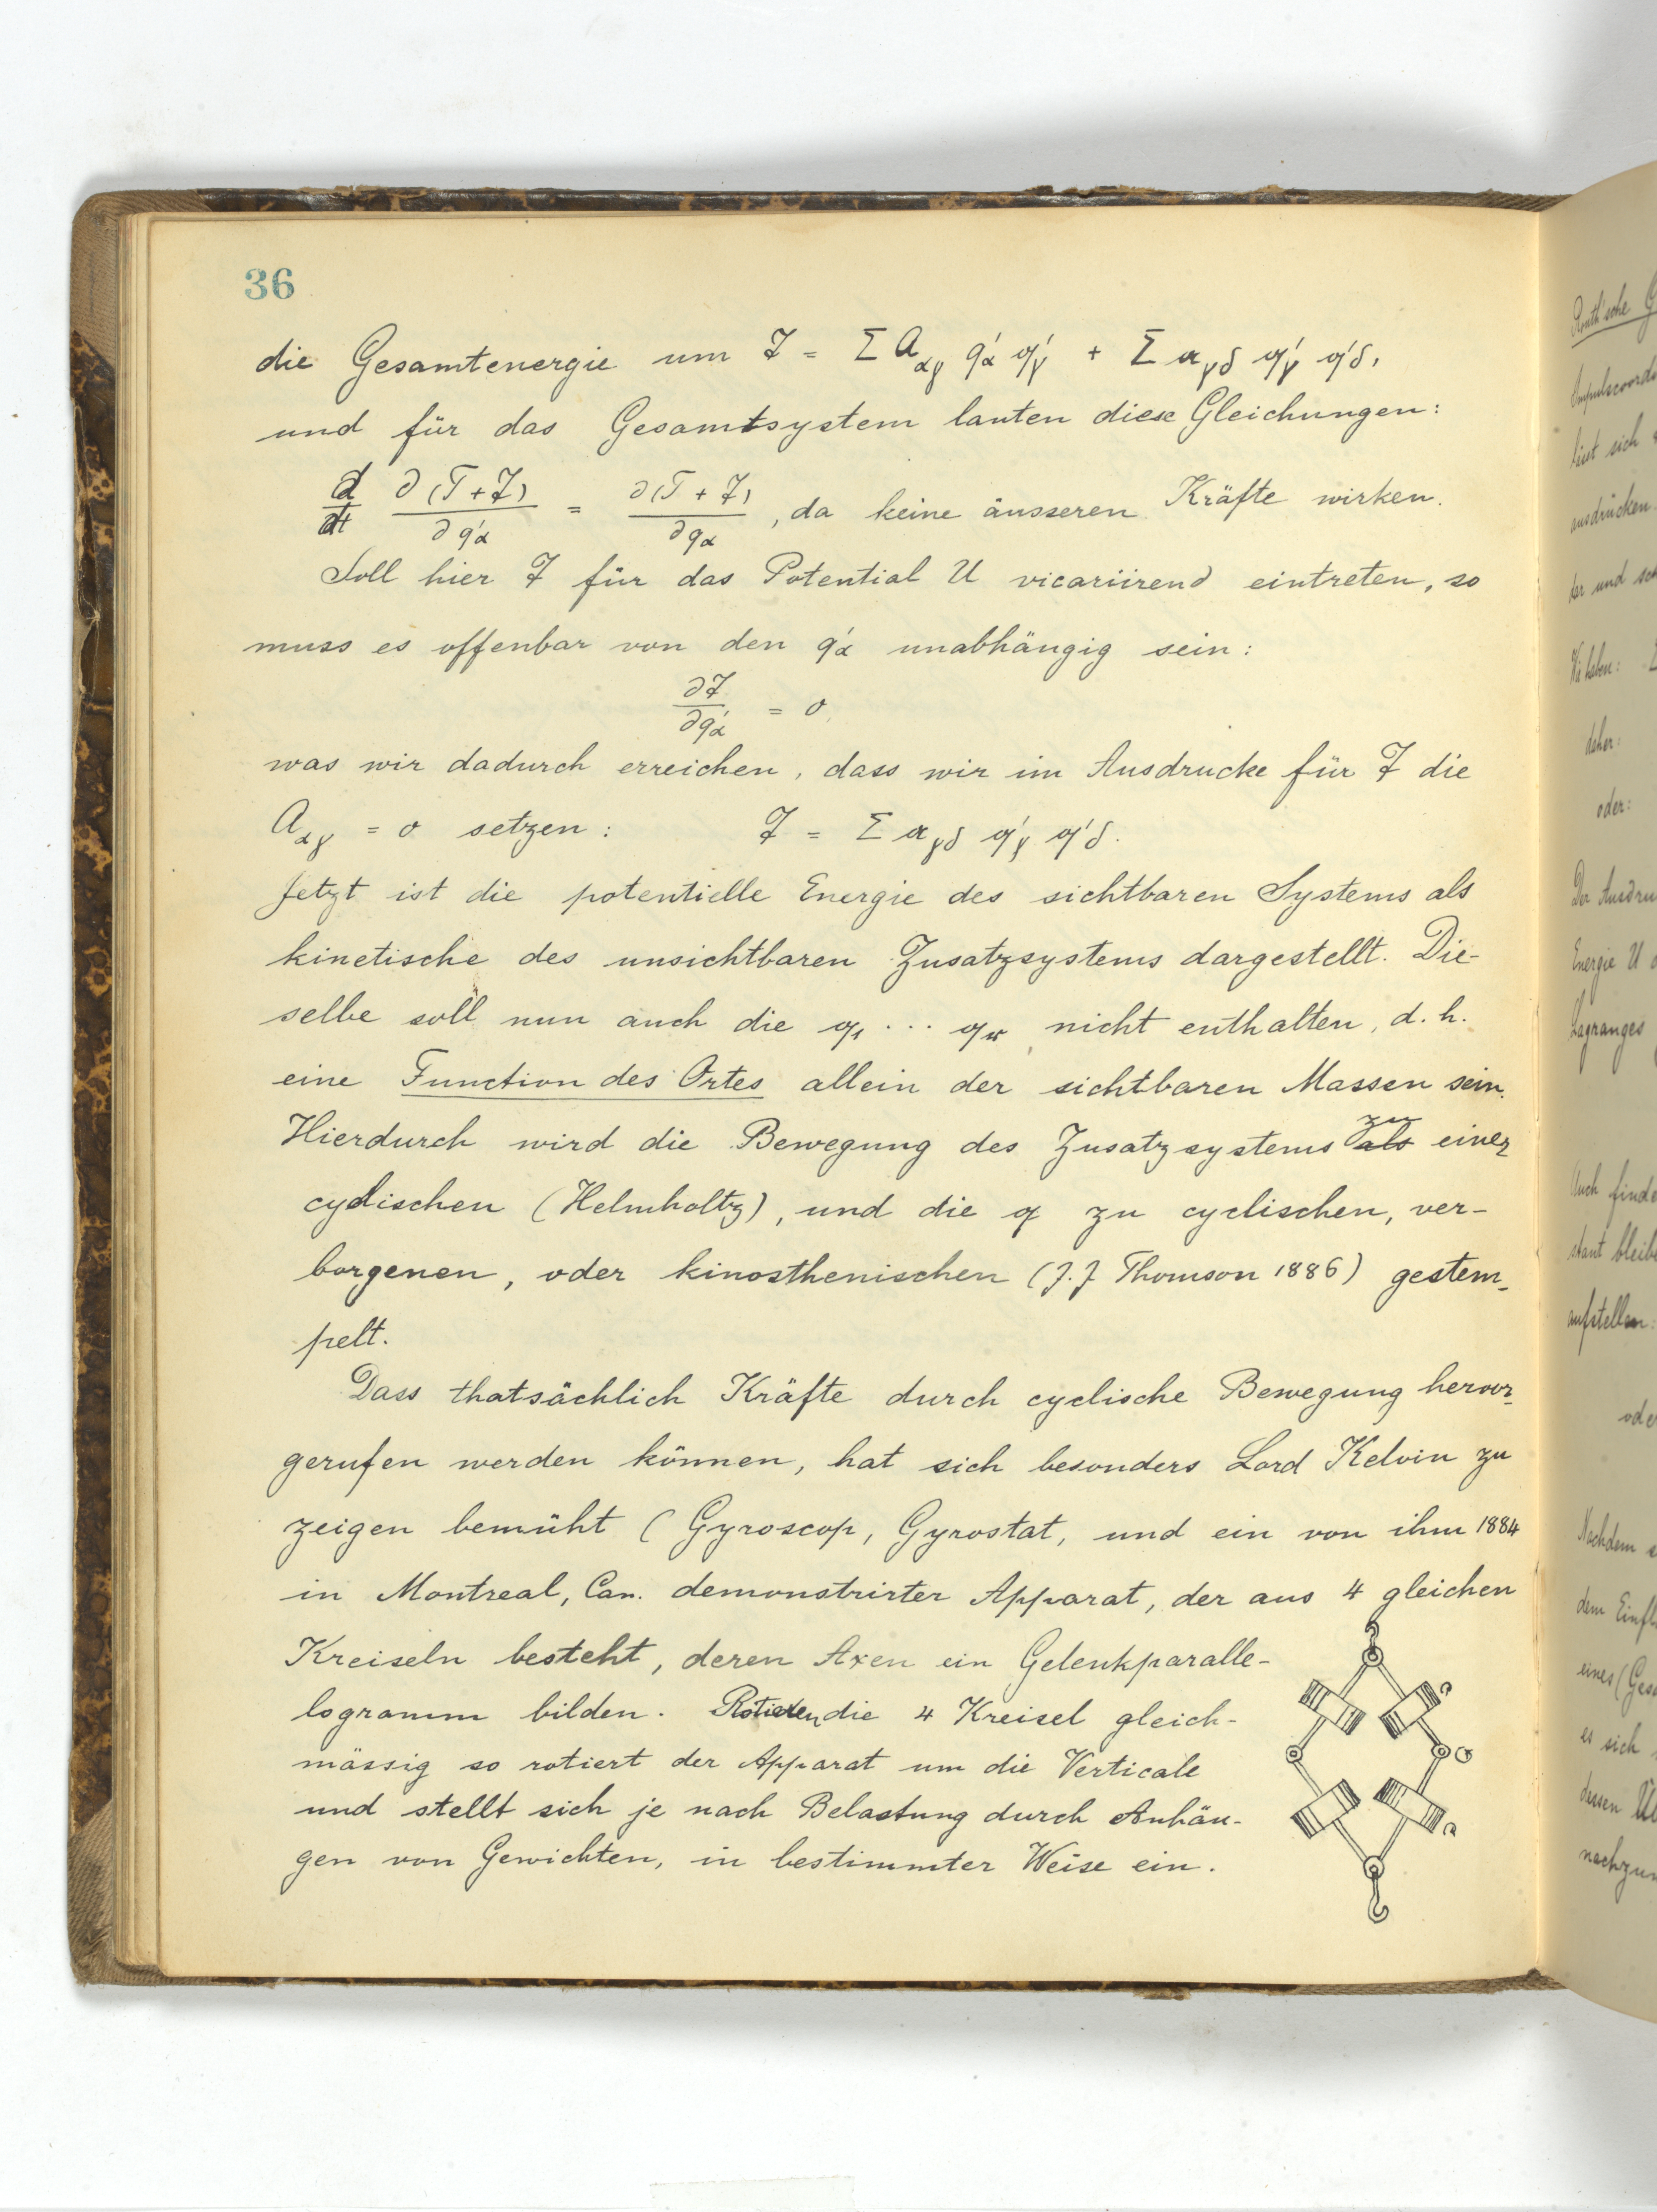 36
die Gesamtenergie um 𝔗 = Σ A_αγ q'_α 𝔮'_γ + Σ 𝔞_γδ 𝔮'_γ 𝔮'_δ,
und für das Gesamtsystem lauten diese Gleichungen:
d/dt ∂(T+𝔗)/∂q'_α = ∂(T+𝔗)/∂q_α, da keine äusseren Kräfte wirken.
Soll hier 𝔗 für das Potential U vicariirend eintreten, so
muss es offenbar von den q'_α unabhängig sein:
∂𝔗/∂q'_α = 0,
was wir dadurch erreichen, dass wir im Ausdrucke für 𝔗 die
A_αγ = 0 setzen: 𝔗 = Σ 𝔞_γδ 𝔮'_γ 𝔮'_δ.
Jetzt ist die potentielle Energie des sichtbaren Systems als
kinetische des unsichtbaren Zusatzsystems dargestellt. Die-
selbe soll nun auch die 𝔮_1 ... 𝔮_𝔯 nicht enthalten, d. h.
eine Function des Ortes allein der sichtbaren Massen sein.
Hierdurch wird die Bewegung des Zusatzsystems als zu einer
cyclischen (Helmholtz), und die 𝔮 zu cyclischen, ver-
borgenen, oder kinosthenischen (J.J Thomson 1886) gestem-
pelt.
Dass thatsächlich Kräfte durch cyclische Bewegung hervor-
gerufen werden können, hat sich besonders Lord Kelvin zu
zeigen bemüht (Gyroscop, Gyrostat, und ein von ihm 1884
in Montreal, Can. demonstrirter Apparat, der aus 4 gleichen
Kreiseln besteht, deren Axen ein Gelenkparalle-
logramm bilden. Rotieren die 4 Kreisel gleich-
mässig so rotiert der Apparat um die Verticale
und stellt sich je nach Belastung durch Anhän-
gen von Gewichten, in bestimmter Weise ein.
Routh'sche
liest sich
ausdrücken
der und
Wir haben:
daher:
oder:
Der Ausdru
Energie U
Lagranges
Auch finde
stant bleib
aufstellen:
ode
Nachdem
dem Einfl
eines (Ges
es sich
dessen
nachzu